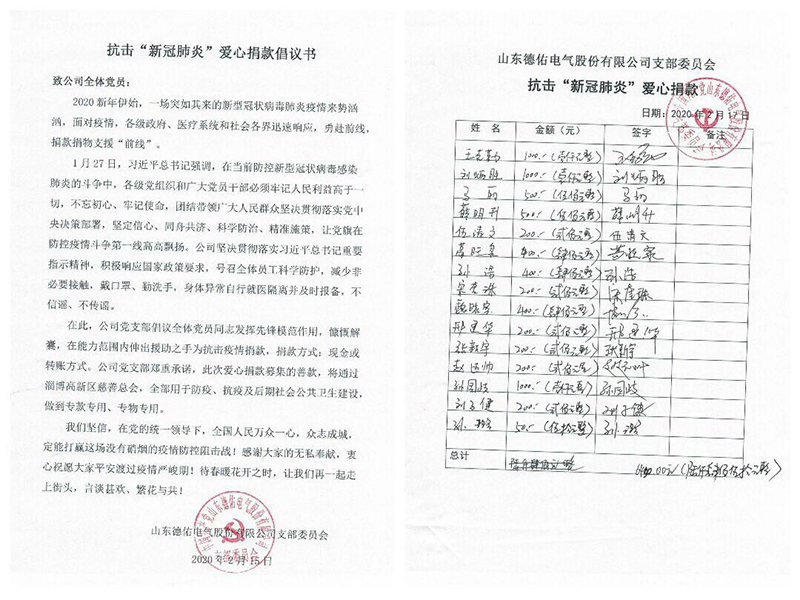 抗击“新冠肺炎”爱心捐款倡议书
致公司全体党员：
2020新年伊始，一场突如其来的新型冠状病毒肺炎疫情来势汹
汹，面对疫情，各级政府、医疗系统和社会各界迅速响应，勇赴前线，
捐款捐物支援“前线”。
1月27日，习近平总书记强调，在当前防控新型冠状病毒感染
肺炎的斗争中，各级党组织和广大党员干部必须牢记人民利益高于一
切，不忘初心、牢记使命，团结带领广大人民群众坚决贯彻落实党中
央决策部署，坚定信心、同舟共济、科学防治、精准施策，让党旗在
防控疫情斗争第一线高高飘扬。公司坚决贯彻落实习近平总书记重要
指示精神，积极响应国家政策要求，号召全体员工科学防护，减少非
必要接触，戴口罩、勤洗手，身体异常自行就医隔离并及时报备，不
信谣、不传谣。
在此，公司党支部倡议全体党员同志发挥先锋模范作用，慷慨解
囊，在能力范围内伸出援助之手为抗击疫情捐款，捐款方式：现金或
转账方式。公司党支部郑重承诺，此次爱心捐款募集的善款，将通过
淄博高新区慈善总会，全部用于防疫、抗疫及后期社会公共卫生建设，
做到专款专用、专物专用。
我们坚信，在党的统一领导下，全国人民万众一心，众志成城，
定能打赢这场没有硝烟的疫情防控阻击战！感谢大家的无私奉献，衷
心祝愿大家平安渡过疫情严峻期！待春暖花开之时，让我们再一起走
上街头，言谈甚欢、繁花与共！
山东德佑电气股份有限公司支部委员会
2020年2月15日
山东德佑电气股份有限公司支部委员会
抗击“新冠肺炎”爱心捐款
日期：2020年2月17日
姓 名 金额（元） 签字 备注
1000.-（壹仟元整）
1000.-（壹仟元整）
500.-（伍佰元整）
薛明升 500.-（伍佰元整）
200.-（贰佰元整）
400.-（肆佰元整）
孙浩 400.-（肆佰元整） 孙浩
200.-（贰佰元整）
400.-（肆佰元整）
邢建华 200.-（贰佰元整）
200.-（贰佰元整）
200.-（贰佰元整）
孙国歧 1000.-（壹仟元整） 孙国歧
刘子健 200.-（贰佰元整） 刘子健
50.-（伍拾元整）
总计